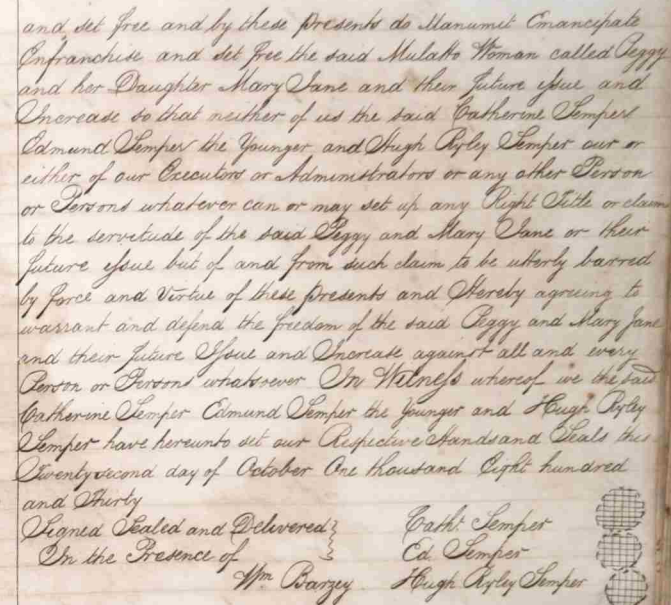 and set free and by these Presents do Manumit Emancipate
Enfranchise and set free the said Mulatto Woman called Peggy
and her Daughter Mary Jane and their future issue and
Increase so that neither of us the said Catherine Semper
Edmund Semper the Younger and Hugh Ryley Semper our or
either of our Executors or Administrators or any other Person
or Persons whatever can or may set up any Right Title or claim
to the servetude of the said Peggy and Mary Jane or their
future issue but of and from such claim to be utterly barred
by force and Virtue of these presents and Hereby agreeing to
warrant and defend the freedom of the said Peggy and Mary Jane
and their future Issue and Increase against all and every
Person or Persons whatsoever In Witness whereof we the said
Catherine Semper Edmund Semper the Younger and Hugh Ryley
Semper have hereunto set our Respective Hands and Seals this
Twenty second day of October One thousand Eight hundred
and Thirty
Signed Sealed and Delivered } Catht Semper
In the Presence of Ed. Semper
Wm Barzey Hugh Ryley Semper